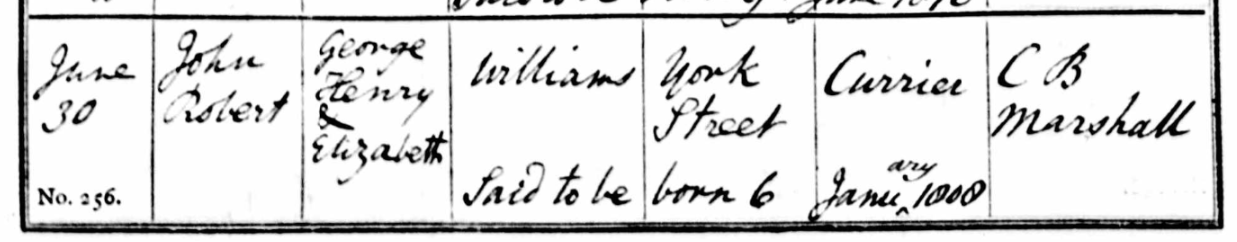 June 1818
June
30
No. 256.
John
Robert
George
Henry
&
Elizabeth
Williams
York
Street
Currier
C B
Marshall
Said to be born 6 Janu^ary 1808